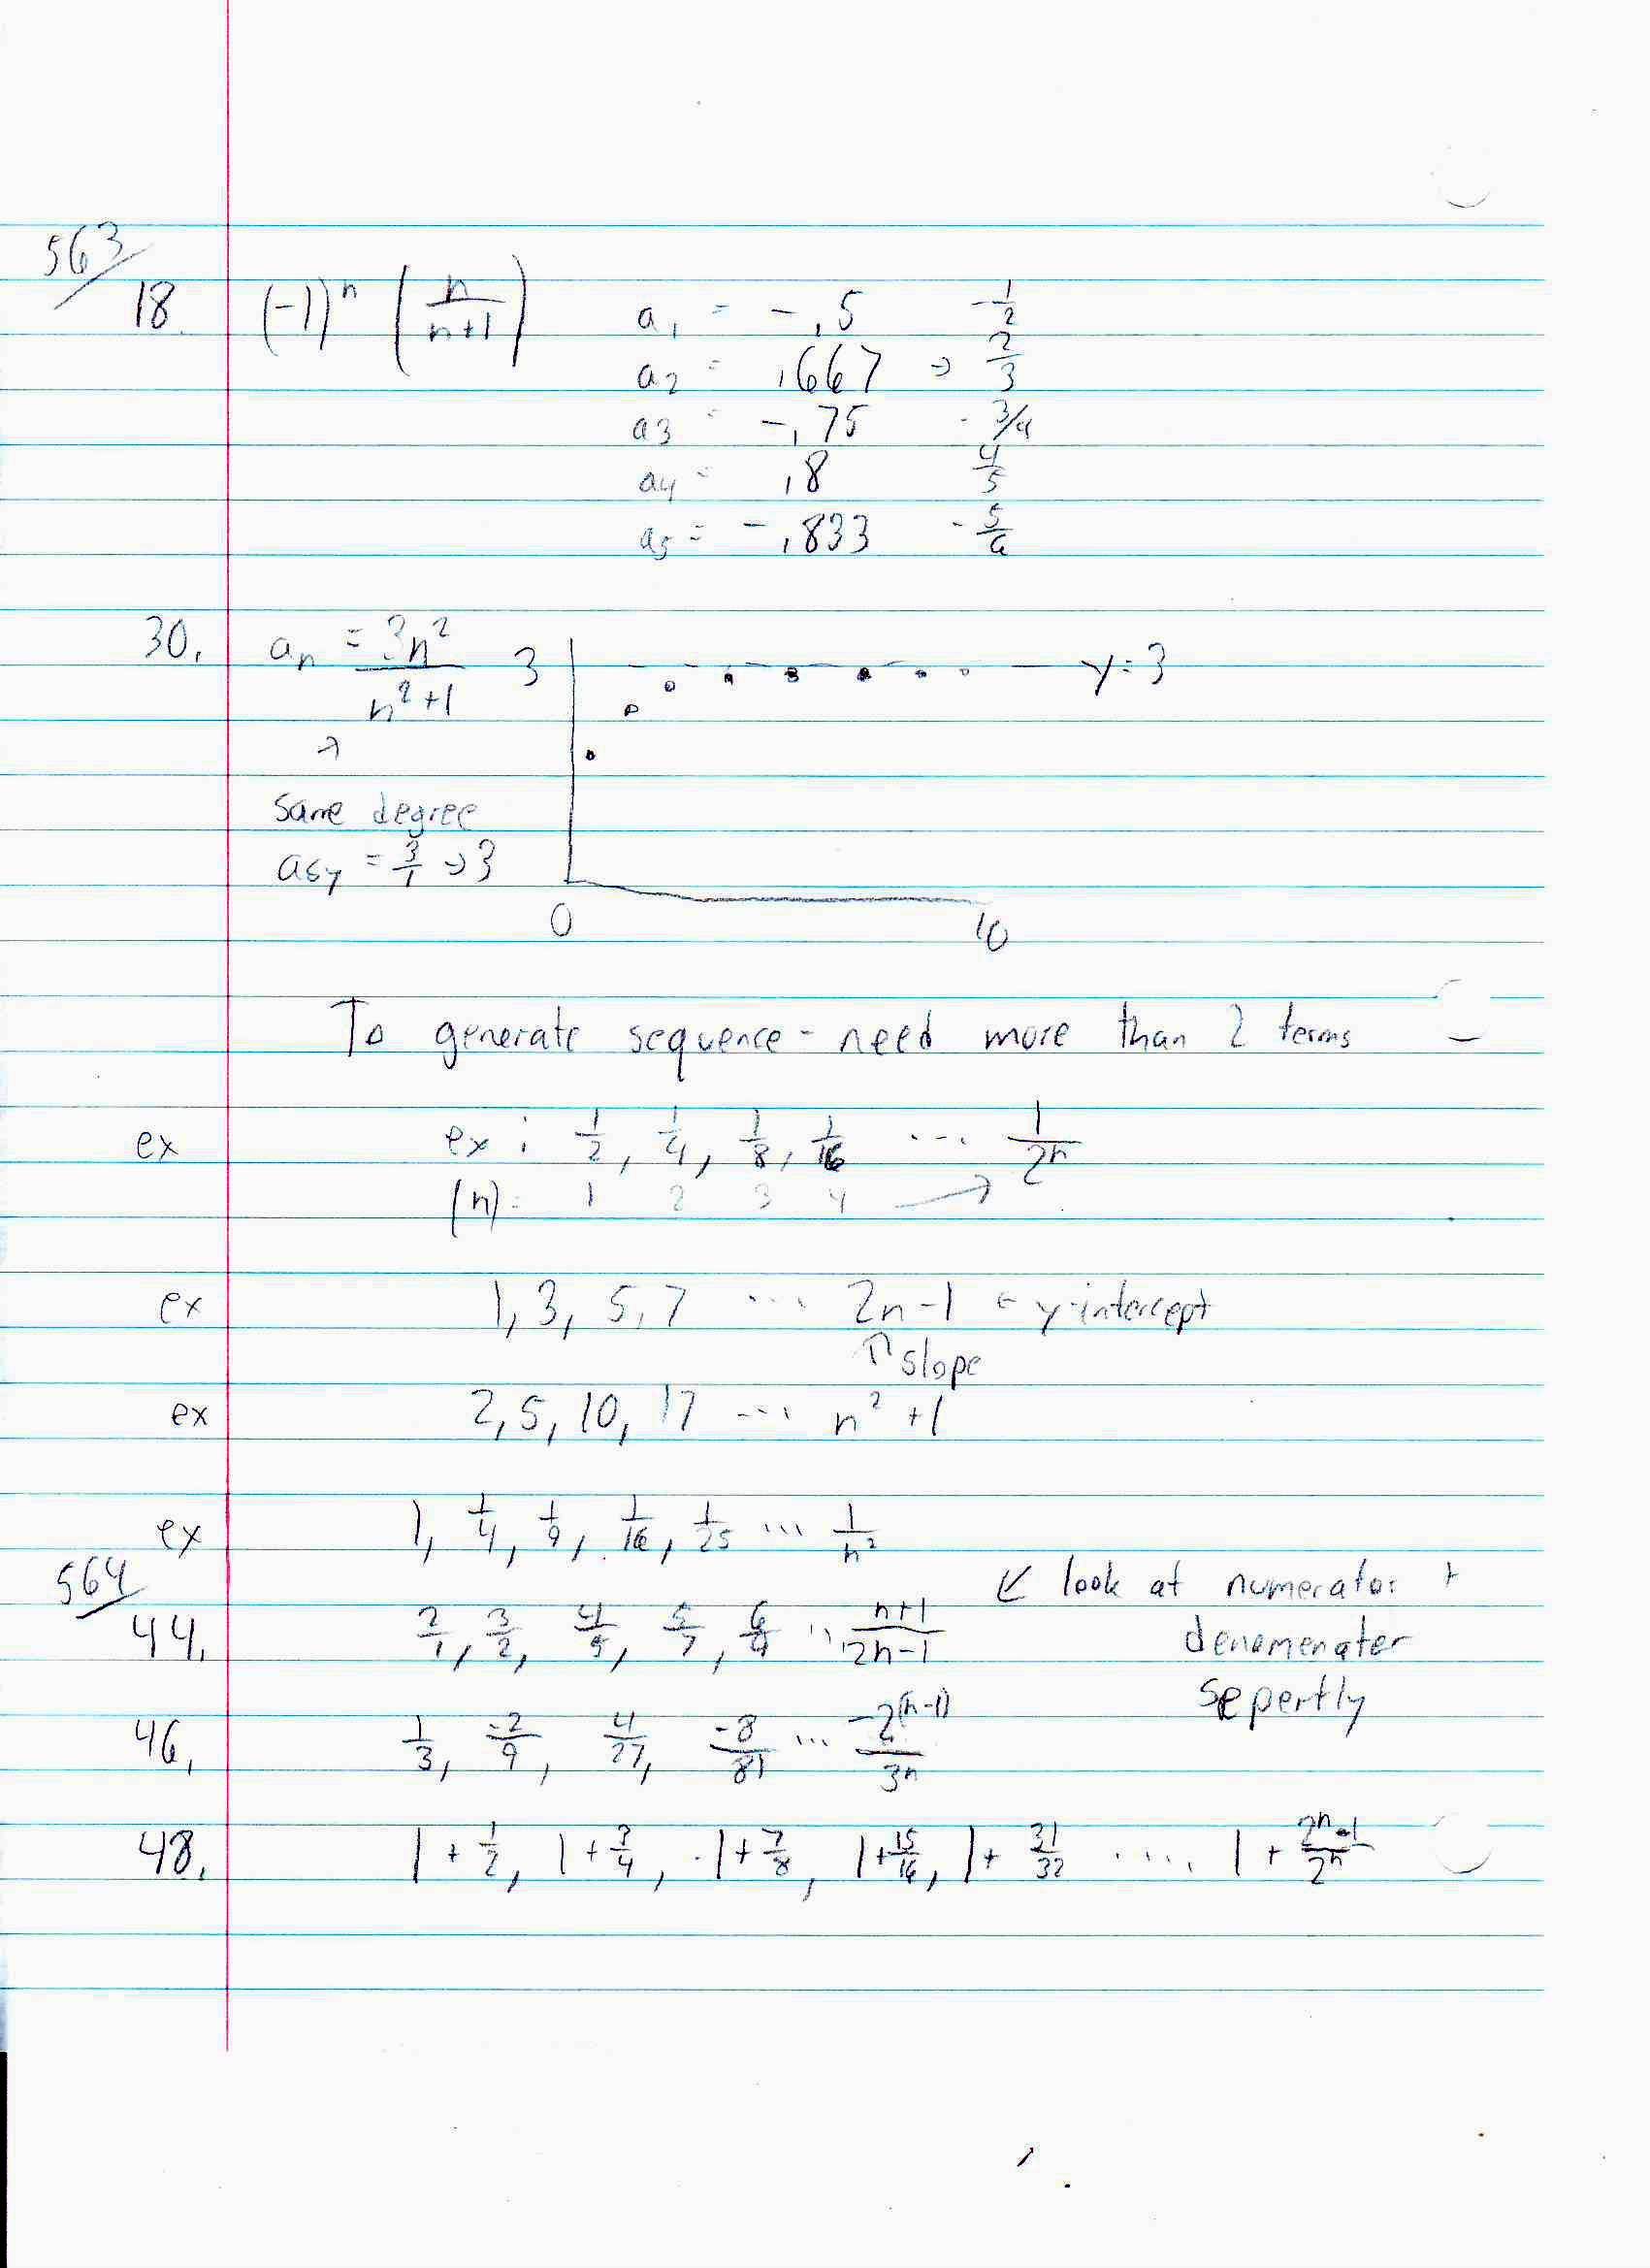 563/
18. (-1)^n (n/(n+1)) a₁ = -.5 -1/2
a₂ = .667 → 2/3
a₃ = -.75 -3/4
a₄ = .8 4/5
a₅ = -.833 -5/6
30. aₙ = 3n²/(n²+1) 3 y=3
same degree
asy = 3/1 → 3
0 10
To generate sequence - need more than 2 terms
ex ex: 1/2, 1/4, 1/8, 1/16 ... 1/2^n
(n) = 1 2 3 4 →
ex 1, 3, 5, 7 ... 2n-1 ← y-intercept
↑ slope
ex 2, 5, 10, 17 ... n²+1
ex 1, 1/4, 1/9, 1/16, 1/25 ... 1/n²
564/ ↙ look at numerator +
44. 2/1, 3/2, 4/5, 5/7, 6/9 ... (n+1)/(2n-1) denomenater
sepertly
46. 1/3, -2/9, 4/27, -8/81 ... -2^(n-1)/3^n
48. 1+1/2, 1+3/4, 1+7/8, 1+15/16, 1+31/32 ..... 1+(2^n-1)/2^n